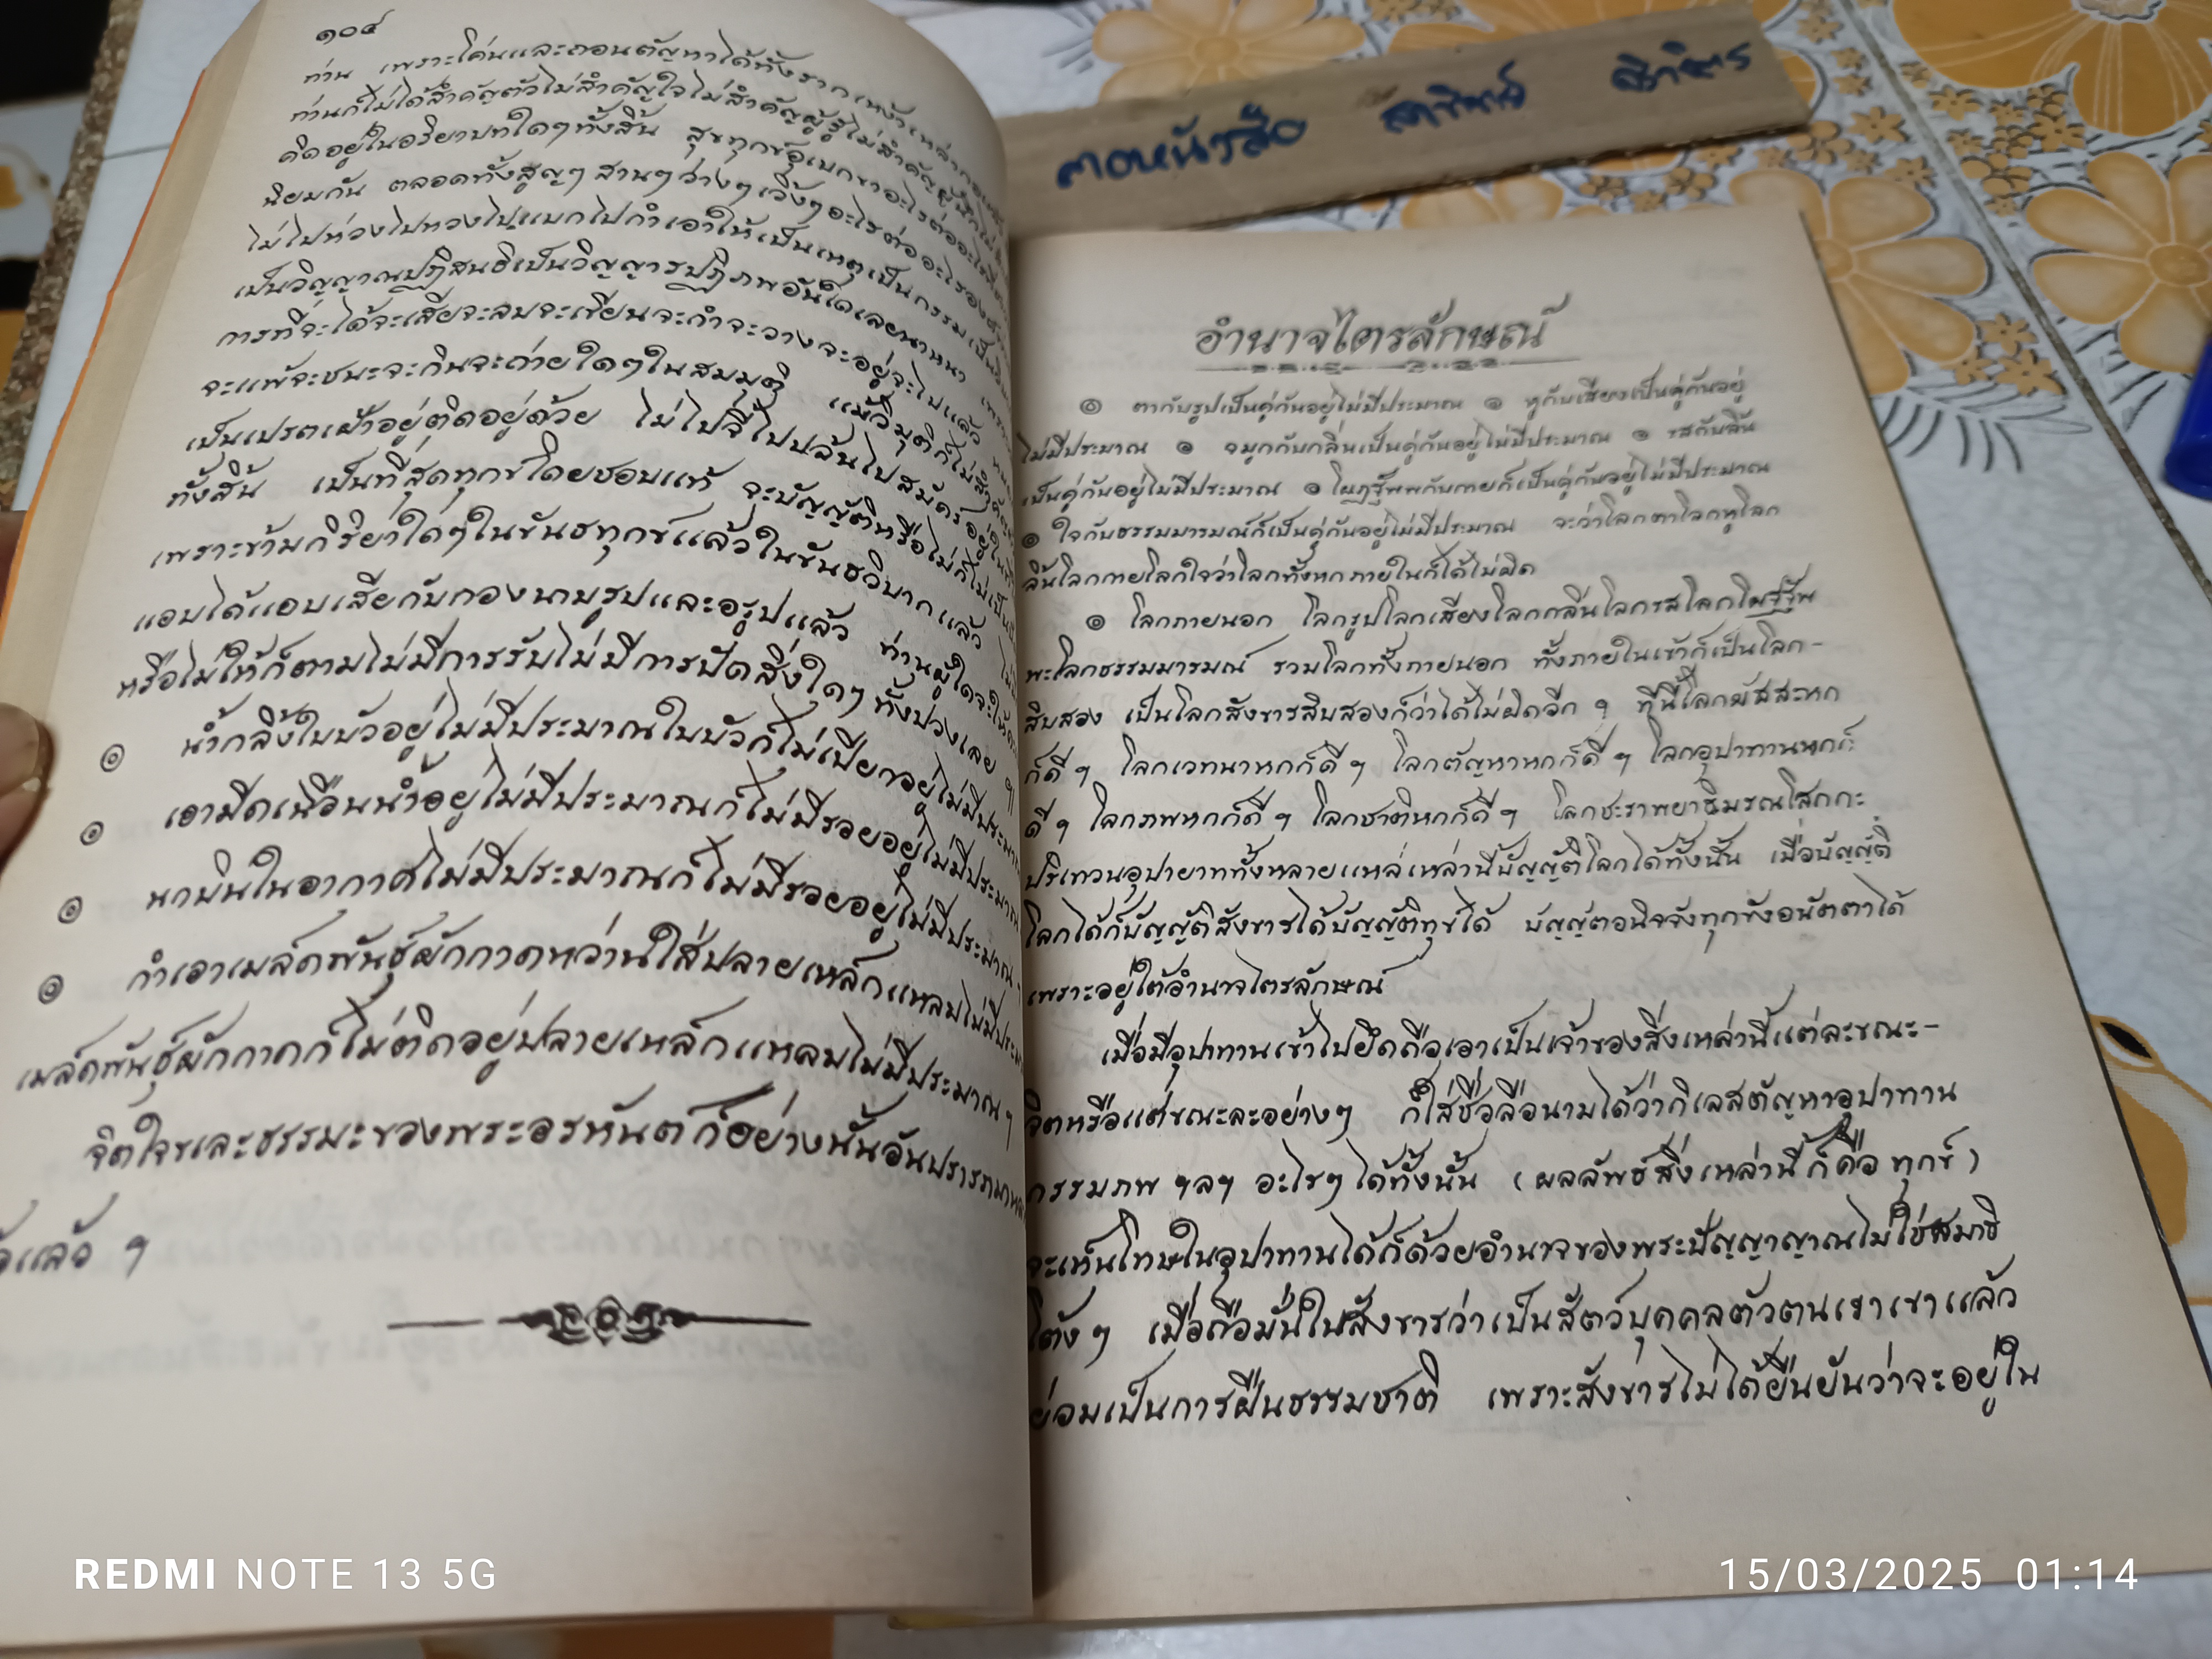 ๑๐๔
ท่าน เพราะโค่นและถอนตัญหาได้ทั้งรากเหง้าเหล่ากอ
ท่านก็ไม่ได้สำคัญตัวไม่สำคัญใจไม่สำคัญผู้รู้ไม่สำคัญผู้นึก
คิดอยู่ในอริยาบทใดๆทั้งสิ้น สุขทุกข์อุเบกขาอะไรต่ออะไร
นิยมกัน ตลอดทั้งสูญๆ สานๆ ว่างๆ เวิ้งๆ อะไรต่ออะไรของ
ไม่ไปห่วงไปหวงไปแบกไปกำเอาให้เป็นเหตุเป็นกรรมเป็น
เป็นวิญญาณปฏิสนธิเป็นวิญญารปฏิภพอันใดเลยนาหนา
การที่จะได้จะเสียจะลบจะเขียนจะกำจะวางจะอยู่จะไปแล้ว
จะแพ้จะชนะจะกินจะถ่ายใดๆในสมมุติ แม้วิมุติก็ไม่
เป็นเปรตเฝ้าอยู่ติดอยู่ด้วย ไม่ไปจี้ไปปล้นไปสมัครอยู่ใน
ทั้งสิ้น เป็นที่สุดทุกข์โดยชอบแท้ จะบัญญัติหรือไม่ก็ไม่เป็น
เพราะข้ามกิริยาใดๆในขันธทุกข์แล้วในขันธวิบากแล้ว
แอบได้แอบเสียกับกองนามรูปและอรูปแล้ว ท่านผู้ใดจะให้
หรือไม่ให้ก็ตามไม่มีการรับไม่มีการปัดสิ่งใดๆ ทั้งปวงเลย ฯ
๏ น้ำกลิ้งใบบัวอยู่ไม่มีประมาณใบบัวก็ไม่เปียกอยู่ไม่มีประมาณ
๏ เอามีดเฉือนน้ำอยู่ไม่มีประมาณก็ไม่มีรอยอยู่ไม่มีประมาณ
๏ นกบินในอากาศไม่มีประมาณก็ไม่มีรอยอยู่ไม่มีประมาณ
๏ กำเอาเมล็ดพันธุ์ผักกาดหว่านใส่ปลายเหล็กแหลมไม่มีประมาณ
เมล็ดพันธุ์ผักกาดก็ไม่ติดอยู่ปลายเหล็กแหลมไม่มีประมาณ ฯ
จิตใจและธรรมะของพระอรหันต์ก็อย่างนั้นอัน
แล้ว ฯ
ลาจินต์
อำนาจไตรลักษณ์
๏ ตากับรูปเป็นคู่กันอยู่ไม่มีประมาณ ๏ หูกับเสียงเป็นคู่กันอยู่
ไม่มีประมาณ ๏ จมูกกับกลิ่นเป็นคู่กันอยู่ไม่มีประมาณ ๏ รสกับลิ้น
เป็นคู่กันอยู่ไม่มีประมาณ ๏ โผฏฐัพพกับกายก็เป็นคู่กันอยู่ไม่มีประมาณ
๏ ใจกับธรรมมารมณ์ก็เป็นคู่กันอยู่ไม่มีประมาณ จะว่าโลกตาโลกหูโลก
ลิ้นโลกกายโลกใจว่าโลกทั้งหกภายในก็ได้ไม่ผิด
๏ โลกภายนอก โลกรูปโลกเสียงโลกกลิ่นโลกรสโลกโผฏฐัพ
พะโลกธรรมมารมณ์ รวมโลกทั้งภายนอก ทั้งภายในเข้าก็เป็นโลก-
สิบสอง เป็นโลกสังขารสิบสองก็ว่าได้ไม่ผิดอีก ฯ ทีนี้โลกผัสสะหก
ก็ดี ฯ โลกเวทนาหกก็ดี ฯ โลกตัญหาหกก็ดี ฯ โลกอุปาทานหกก็
ดี ฯ โลกภพหกก็ดี ฯ โลกชาติหกก็ดี ฯ โลกชะราพยาธิมรณโสกกะ
ปริเทวนอุปายาททั้งหลายแหล่เหล่านี้บัญญัติโลกได้ทั้งนั้น เมื่อบัญญัติ
โลกได้ก็บัญญัติสังขารได้บัญญัติทุข์ได้ บัญญัตอนิจจังทุกขังอนัตตาได้
เพราะอยู่ใต้อำนาจไตรลักษณ์
เมื่อมีอุปาทานเข้าไปยึดถือเอาเป็นเจ้าของสิ่งเหล่านี้แต่ละขณะ-
จิตหรือแต่ขณะละอย่างๆ ก็ใส่ชื่อลือนามได้ว่ากิเลสตัญหาอุปาทาน
กรรมภพ ฯลฯ อะไรๆ ได้ทั้งนั้น (ผลลัพธ์สิ่งเหล่านี้ก็คือ ทุกข์)
จะเห็นโทษในอุปาทานได้ก็ด้วยอำนาจของพระปัญญาญาณไม่ใช่สมาธิ
โด่งๆ เมื่อถือมั่นในสังขารว่าเป็นสัตว์บุคคลตัวตนเราเขาแล้ว
ย่อมเป็นการฝืนธรรมชาติ เพราะสังขารไม่ได้ยืนยันว่าจะอยู่ใน
REDMI NOTE 13 5G
15/03/2025 01:14